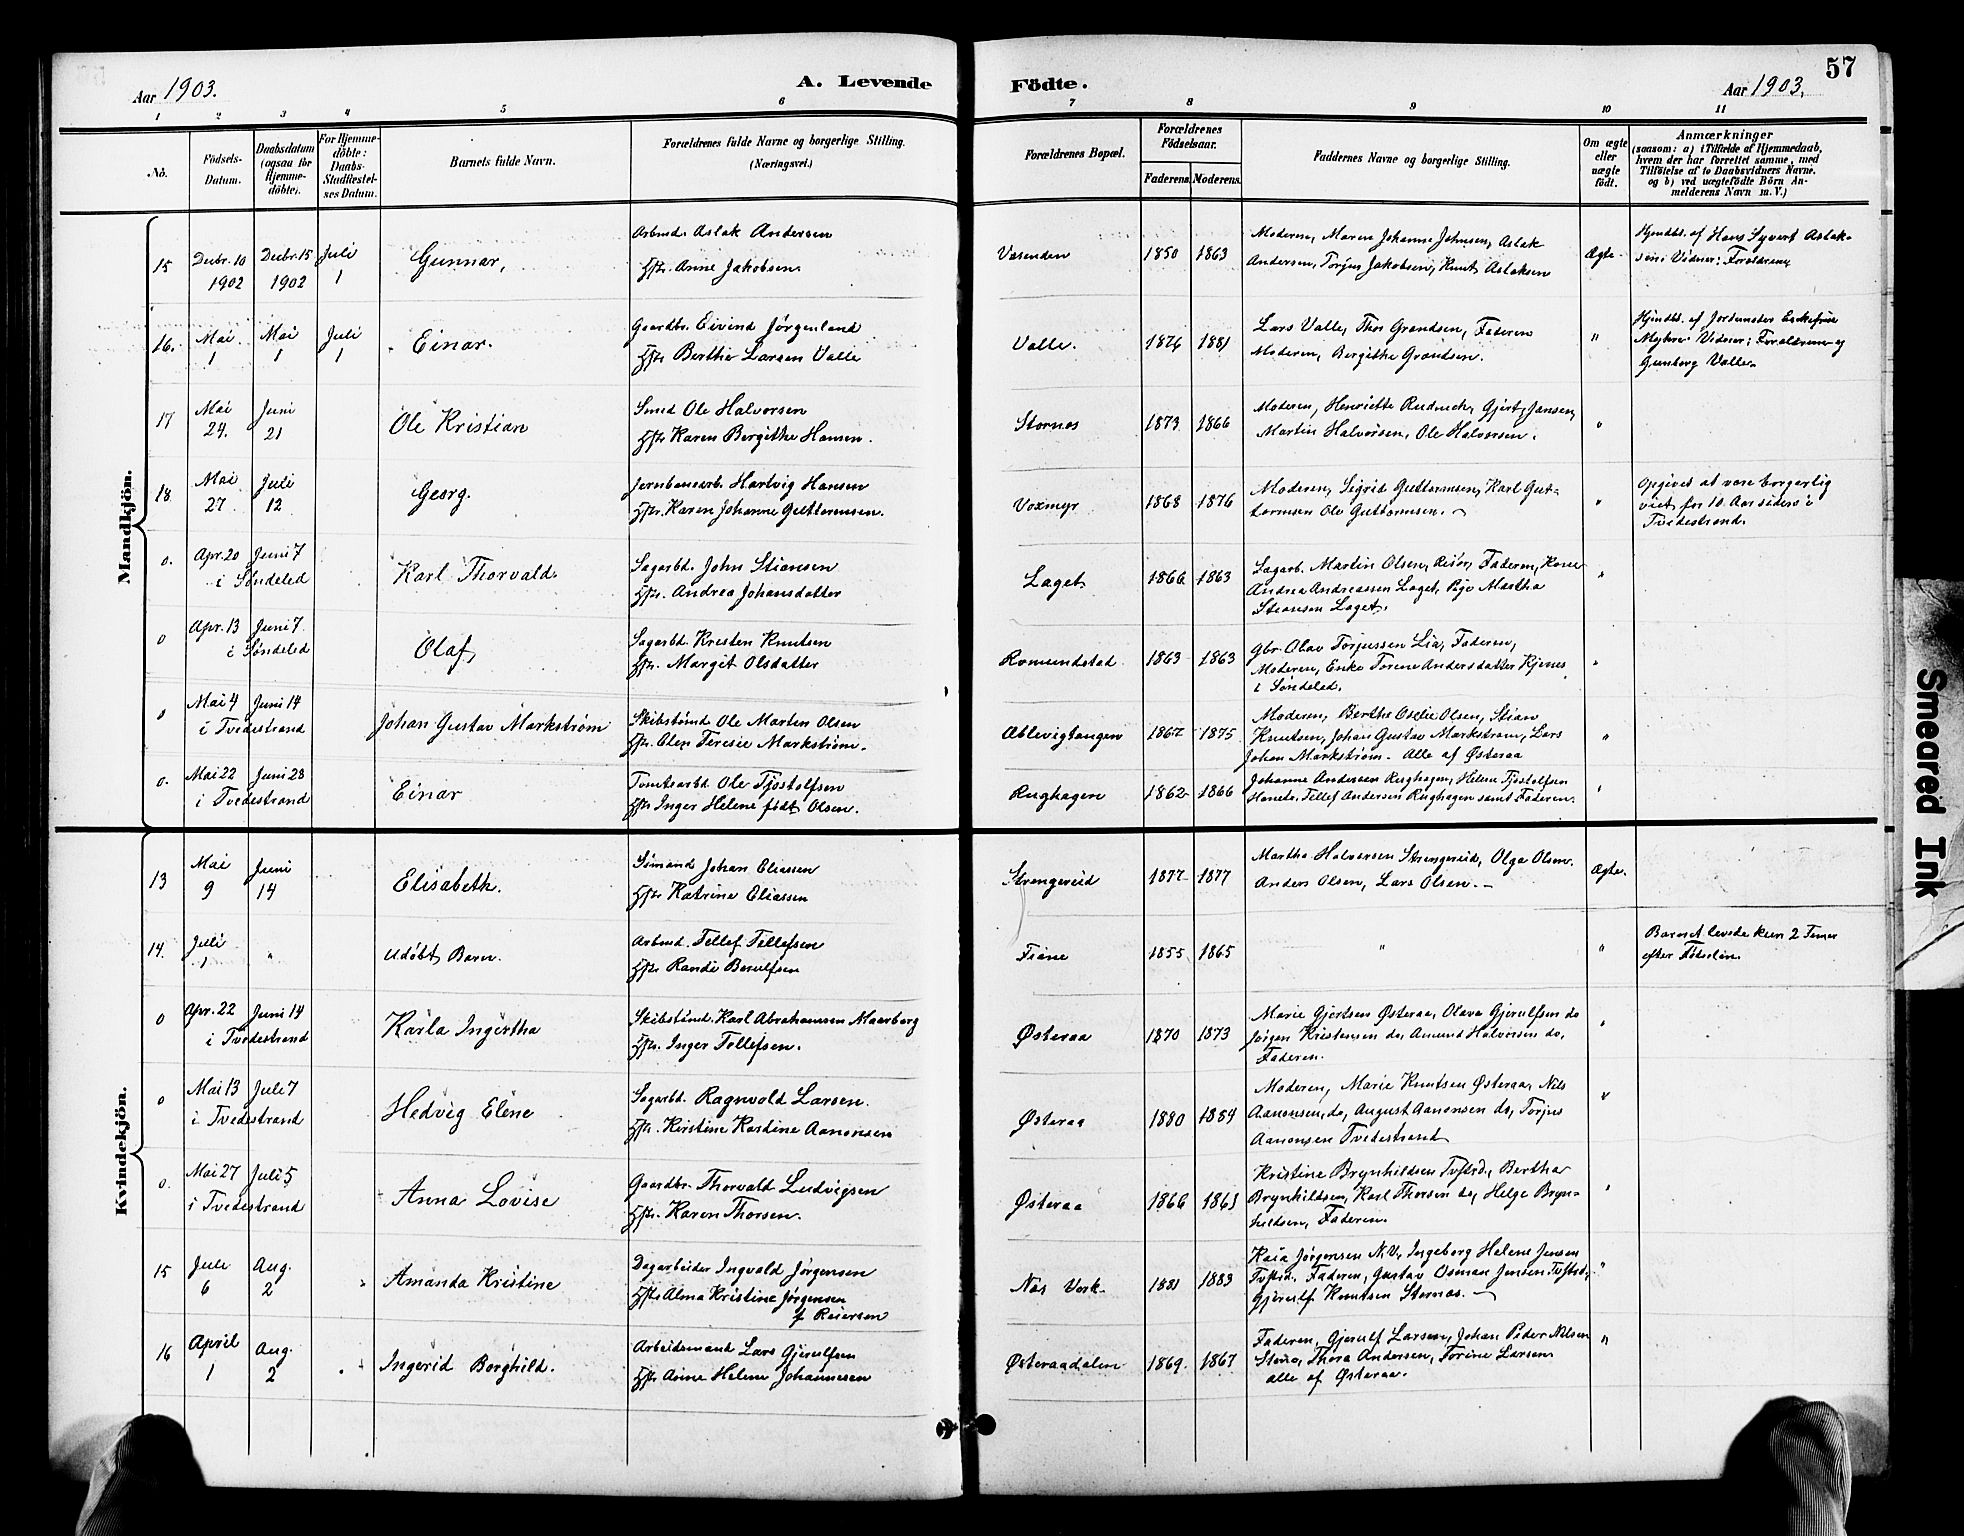 57
Aar 1903.
A. Levende
Födte.
Aar 1903.
1 2 3 4 5 6 7 8 9 10 11
No.
Födsels-
Datum.
Daabsdatum
(ogsaa för
Hjemme-
döbte).
For Hjemme-
döbte:
Daabs-
Stadfæstel-
ses Datum.
Barnets fulde Navn.
Forældrenes fulde Navne og borgerlige Stilling.
(Næringsvei.)
Forældrenes Bopæl.
Forældrenes
Födselsaar.
Faderens
Moderens.
Faddernes Navne og borgerlige Stilling.
Om ægte
eller
uægte
födt.
Anmærkninger
(saasom: a) i Tilfælde af Hjemmedaab,
hvem der har forrettet samme, med
Tilföielse af to Daabsvidners Navne.
og b) ved uægtefödte Börn An-
melderens Navn m. V.)
Mandkjön.
15
Decbr. 10
1902
Decbr. 15
1902
Juli
1
Gunnar,
Arbmd. Aslak Andersen
Hst. Anne Jakobsen
Vasenden
1850
1863
Moderen, Maren Johanne Johnsen, Aslak
Andersen, Torjus Jakobsen, Knut Aslaksen
Ægte
Hjmdbt. af Hans Syvert Aslak-
sen. Vidner: Forældrene
16.
Mai
1
Mai
1
Juli
1
Einar.
Gaardbr. Eivind Jørgenland
Hst. Berthe Larsen Valle
Valle.
1876
1881
Lars Valle, Thor Grandsen, Faderen
Moderen, Bergithe Grandsen.
"
Hjmdbt. af Jordemoder
Myhre. Vidner: Forældrene og
Gunborg Valle.
17
Mai
24.
Juni
21
Ole Kristian
Smed Ole Halvorsen
Hst. Karen Bergithe Hansen.
Stornes
1873
1866
Moderen, Henriette, Gjert Jansen,
Martin Halvorsen, Ole Halvorsen.
"
18
Mai
27
Juli
12
Georg.
Jernbanearb. Hartvig Hansen
Hst. Karen Johanne Guttormsen.
Voxmyr
1868
1876
Moderen, Sigrid Guttormsen, Karl Gut-
tormsen Ole Guttormsen.
"
Opgives at være borgerlig
viet for 10 Aar siden i
Tvedestrand.
0.
Apr. 20
Juni 7
i Søndeled
Karl Thorvald.
Sagarbd. John Stiansen
Hst. Andrea Johansdatter
Laget
1866
1863
Sagarb. Martin Olsen, Risør, Faderen, Kone
Andrea Andreassen Laget, Pige Martha
Stiansen Laget.
"
0
Apr. 13
Juni 7
i Søndeled
Olaf,
Sagarbd. Kristen Knutsen
Hst. Margit Olsdatter
Romundstad
1863
1863
Gbr. Olav Torjussen Lia, Faderen,
Moderen, Enke Torine Andersdatter Kjenes
i Søndeled.
"
0
Mai 4
Juni 14
i Tvedestrand
Johan Gustav Markstrøm
Skibstømd Ole Marten Olsen
Hst. Olen Teresie Markstrøm.
Ablevigtangen
1867
1875
Moderen, Berthe Oselie Olsen, Stian
Knutsen, Johan Gustav Markstrøm, Lars
Johan Markstrøm. Alle af Østeraa
"
0.
Mai 22
Juni 28
i Tvedestrand
Einar
Tomtearbd. Ole Tjøstolfsen
Hst. Inger Helene født Olsen.
Rughagen
1862
1866
Johanne Andersen Rughagen, Helene Tjøstolfsen
Tellef Andersen Rughagen samt Faderen.
"
Kvindekjön.
13
Mai
9
Juni
14
Elisabeth.
Sømand Johan Eliassen
Hst. Katrine Eliassen
Strengereid
1877
1877
Martha Halvorsen Strengereid, Olga Olsen.
Anders Olsen, Lars Olsen.
Ægte.
14.
Juli
1
"
Udøbt Barn.
Arbmd. Tellef Tellefsen
Hst. Randi Berulfsen
Fiane
1855
1865
"
"
Barnet levede kun 2 Timer
efter Fødselen.
0
Apr. 22
Juni 14
i Tvedestrand
Karla Ingertha
Skibstømd. Karl Abrahamsen Maarberg
Hst. Inger Tellefsen.
Østeraa
1870
1873
Marie Gjertsen Østeraa, Olava Gjerulfsen do
Jørgen Kristensen do, Amund Halvorsen do,
Faderen.
"
0
Mai 13
Juli 7
i Tvedestrand
Hedvig Elene
Sagarbd. Ragnvald Larsen.
Hst. Kirstine Kasdine Aanonsen
Østeraa
1880
1884
Moderen, Marie Knutsen Østeraa, Nils
Aanonsen, do, August Aanonsen do, Torjus
Aanonsen Tvedestrand
"
0.
Mai 27
Juli 5
i Tvedestrand
Anna Lovise
Gaardbr. Thorvald Ludvigsen
Hst. Karen Thorsen.
Østeraa
1866
1861
Kristine Brynhildsen Tvstrd., Bertha
Brynhildsen, Karl Thorsen do, Helge Bryn-
hildsen, Faderen.
"
15
Juli
6
Aug.
2
Amanda Kristine
Dagarbeider Ingvald Jørgensen
Hst. Alma Kristine Jørgensen
f. Reiersen
Næs Verk
1881
1883
Kaia Jørgensen N.V., Ingeborg Helene Jensen
Tvstrd. Faderen, Gustav Osman Jensen Tvstrd,
Gjerulf Knutsen Stornæs.
"
16
April
1
Aug.
2
Ingerid Borghild.
Arbeidsmand Lars Gjerulfsen
Hst. Anne Helene Johannesen
Østeraadalen
1869.
1867
Faderen, Gjerulf Larsen, Johan Peder Nilsen
Thora Andersen, Torine Larsen
alle af Østeraa.
"
Smeared Ink